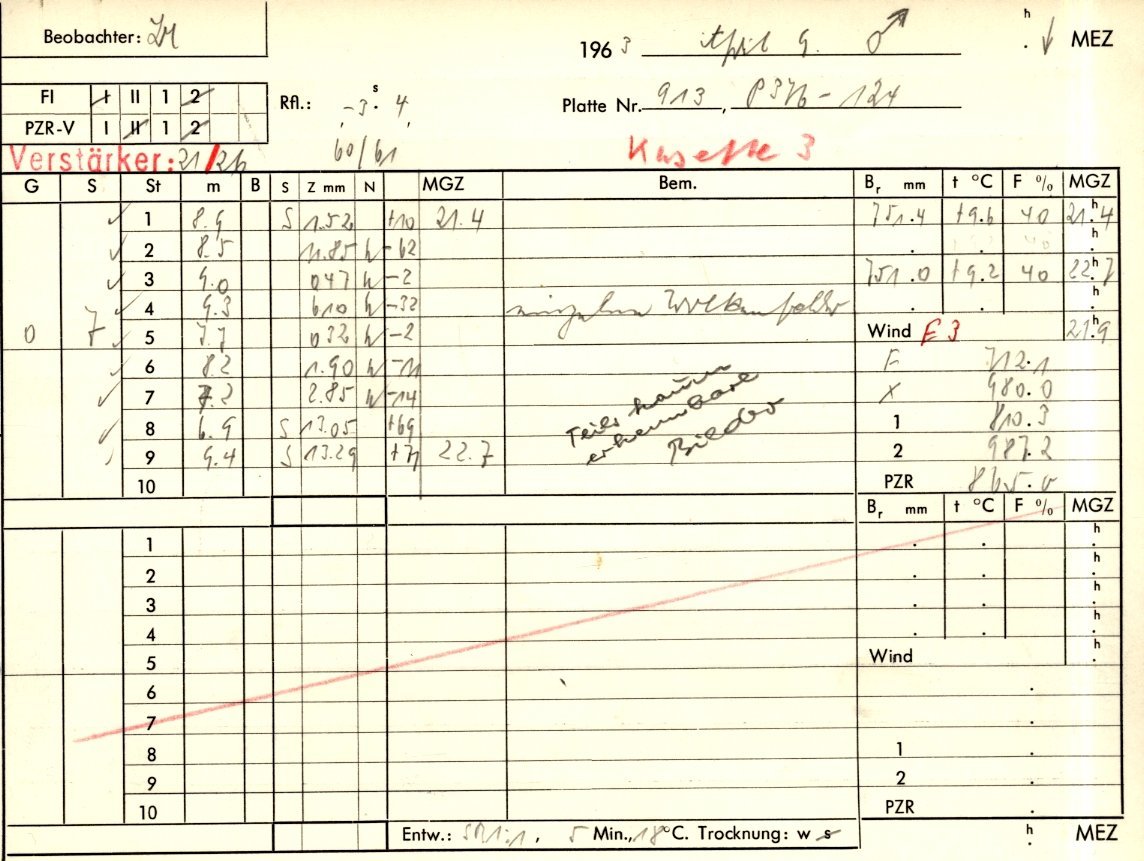 Beobachter:
1963 April 9. ♂ h . MEZ
FI I II 1 2
Rfl.: -3ˢ.4,
Platte Nr. 913, P376-124
PZR-V I II 1 2
60/61
Verstärker: 21/26
Kasette 3
G S St m B S Z mm N MGZ Bem. Bᵣ mm t °C F % MGZ
1 8.9 S 1.52 +10 21.4 751.4 +9.6 40 21ʰ.4
2 8.5 11.85 N -62 . . h .
3 9.0 047 N -2 751.0 +9.2 40 22ʰ.7
4 9.3 610 N -32 einzelne Wolkenfelder . . h .
0 7 5 7.7 032 N -2 Wind E 3 21ʰ.9
6 8.2 1.90 N -11 F 712.1
7 7.2 2.85 N -14 X 980.0
8 6.9 S 13.05 +69 1 810.3
9 9.4 S 13.29 +71 22.7 2 987.2
Teils kaum
erkennbare
Bilder
10 PZR 865.0
Bᵣ mm t °C F % MGZ
1 . . h .
2 . . h .
3 . . h .
4 . . h .
5 Wind h .
6 .
7 .
8 1 .
9 2 .
10 PZR .
Entw.: 1:1, 5 Min., 18°C. Trocknung: w s h . MEZ